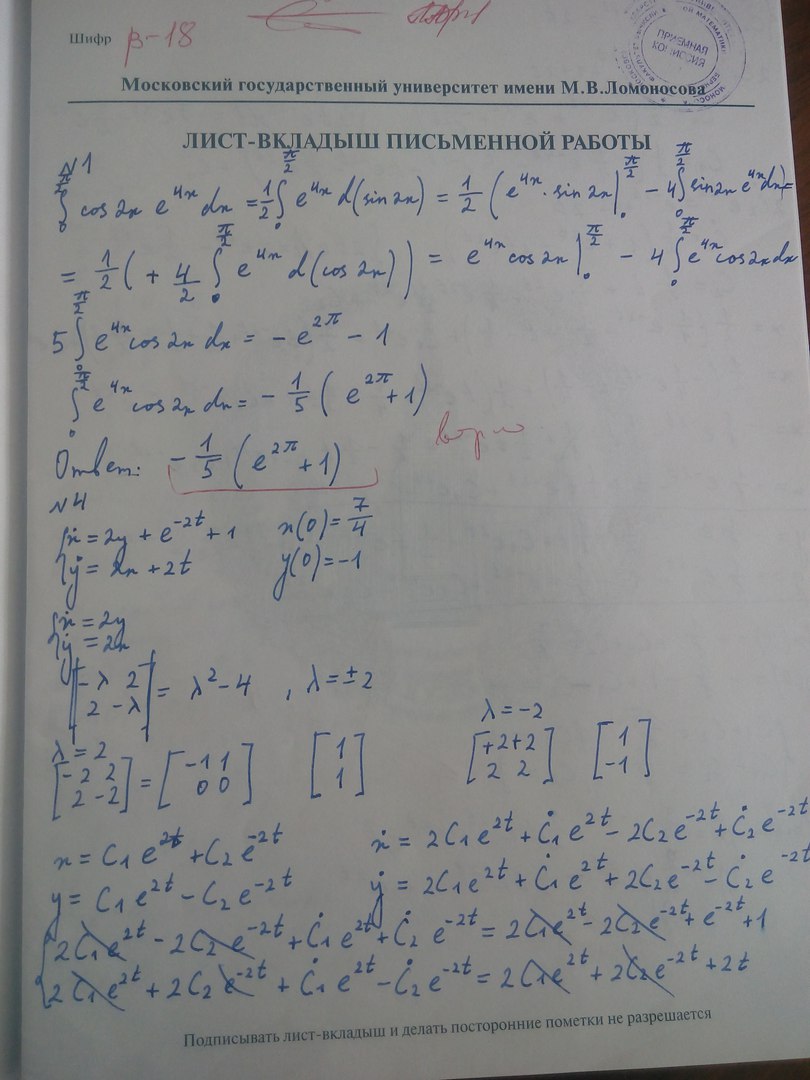 Шифр β-18
ПРИЕМНАЯ КОМИССИЯ
Московский государственный университет имени М.В.Ломоносова
ЛИСТ-ВКЛАДЫШ ПИСЬМЕННОЙ РАБОТЫ
N1
∫_0^{π/2} cos 2x e^{4x} dx = 1/2 ∫_0^{π/2} e^{4x} d(sin 2x) = 1/2 ( e^{4x} · sin 2x |_0^{π/2} − 4 ∫_0^{π/2} sin 2x e^{4x} dx) =
= 1/2 ( + 4/2 ∫_0^{π/2} e^{4x} d(cos 2x) ) = e^{4x} cos 2x |_0^{π/2} − 4 ∫_0^{π/2} e^{4x} cos 2x dx
5 ∫_0^{π/2} e^{4x} cos 2x dx = − e^{2π} − 1
∫_0^{π/2} e^{4x} cos 2x dx = − 1/5 ( e^{2π} + 1)
верно
Ответ: − 1/5 ( e^{2π} + 1)
N4
{ ẋ = 2y + e^{−2t} + 1 x(0) = 7/4
{ ẏ = 2x + 2t y(0) = −1
{ ẋ = 2y
{ ẏ = 2x
| −λ 2 ; 2 −λ | = λ² − 4 , λ = ± 2
λ = 2 λ = −2
[ −2 2 ; 2 −2 ] = [ −1 1 ; 0 0 ] [ 1 ; 1 ] [ +2 +2 ; 2 2 ] [ 1 ; −1 ]
x = C₁ e^{2t} + C₂ e^{−2t} ẋ = 2C₁ e^{2t} + Ċ₁ e^{2t} − 2C₂ e^{−2t} + Ċ₂ e^{−2t}
y = C₁ e^{2t} − C₂ e^{−2t} ẏ = 2C₁ e^{2t} + Ċ₁ e^{2t} + 2C₂ e^{−2t} − Ċ₂ e^{−2t}
{ 2C₁ e^{2t} − 2C₂ e^{−2t} + Ċ₁ e^{2t} + Ċ₂ e^{−2t} = 2C₁ e^{2t} − 2C₂ e^{−2t} + e^{−2t} + 1
{ 2C₁ e^{2t} + 2C₂ e^{−2t} + Ċ₁ e^{2t} − Ċ₂ e^{−2t} = 2C₁ e^{2t} + 2C₂ e^{−2t} + 2t
Подписывать лист-вкладыш и делать посторонние пометки не разрешается